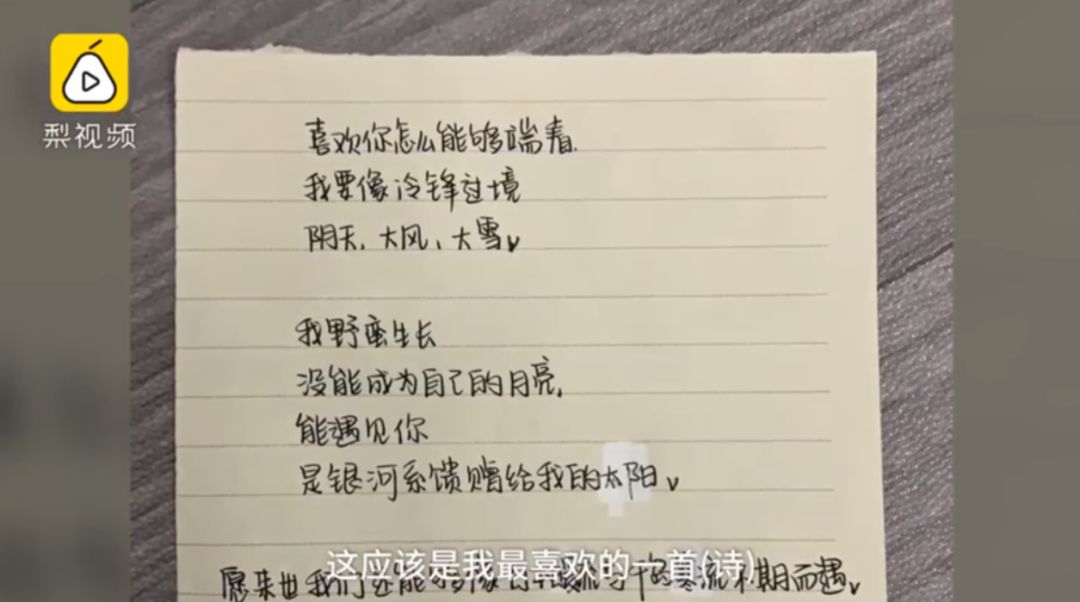 梨视频
喜欢你怎么能够端着.
我要像冷锋过境
阴天、大风、大雪。
我野蛮生长
没能成为自己的月亮,
能遇见你
是银河系馈赠给我的太阳。
这应该是我最喜欢的一首(诗)
愿来世我们还能 的寒流不期而遇。